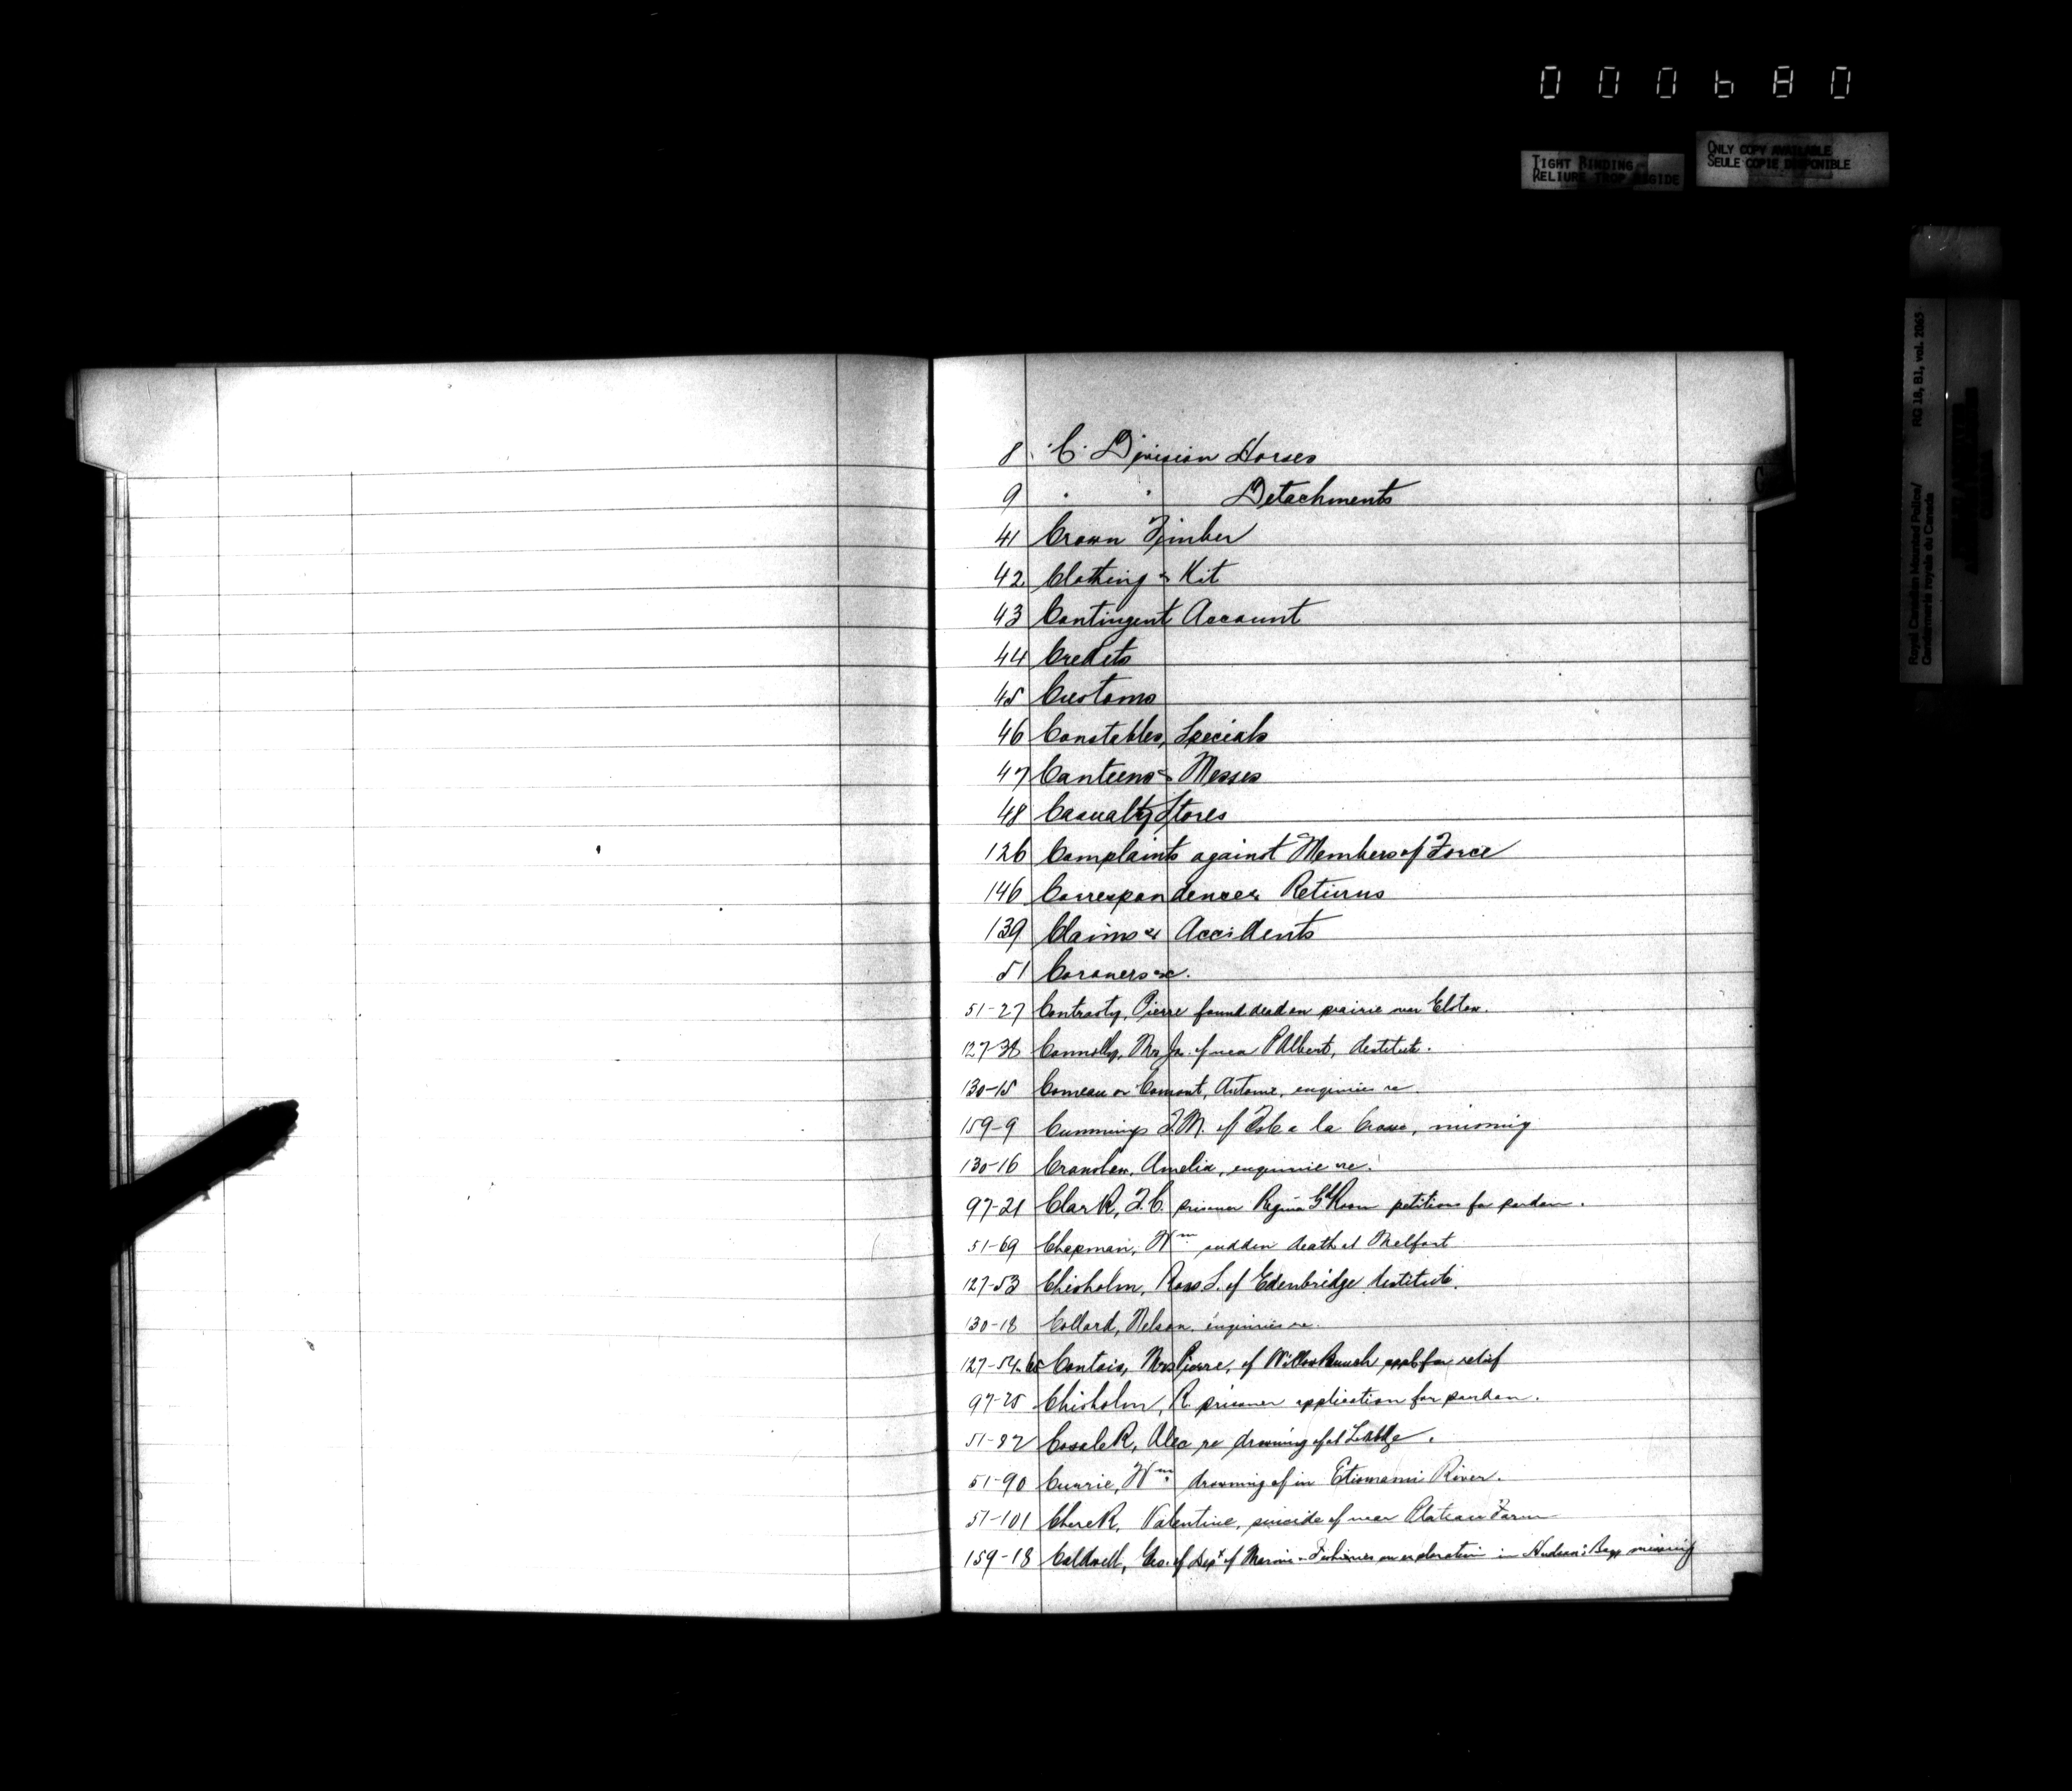 000680
TIGHT BINDING
RELIURE TROP RIGIDE
ONLY COPY AVAILABLE
SEULE COPIE DISPONIBLE
Royal Canadian Mounted Police/ RG 18, B1, vol. 2063
Gendarmerie royale du Canada
C
8 "C" Division Horses
9 " " Detachments
41 Crown Timber
42 Clothing & Kit
43 Contingent Account
44 Credits
45 Customs
46 Constables, Specials
47 Canteens & Messes
48 Casualty Stores
126 Complaints against Members of Force
146 Correspondence & Returns
139 Claims & Accidents
51 Coroners &c.
51-27 Pierre found dead on prairie near
127-38 Connolly, Mrs Jas. of near P Albert, destitute.
130-15 Comeau or Comont, Antoine, enquiries re
159-9 Cummings J.M. of Isle a la Crosse, missing
130-16 Amelia, enquirie re.
97-21 Clark, J.C. prisoner Regina Gd Room petitions for pardon.
51-69 Chapman, Wm sudden death at Melfort
127-53 Chisholm, Ross L. of Edenbridge destitute.
130-18 Collard, Nelson, enquiries re.
127-54 & 65 Contois, Mrs Pierre, of Willow Bunch appl for relief
97-25 Chisholm, R. prisoner application for pardon.
51-87 Alec re drowning of at
51-90 Currie, Wm drowning of in Etiomami River.
51-101 Cherek, Valentine, suicide of near Plateau Farm
159-18 Caldwell, Geo. of Dept of Marine & Fisheries on exploration in Hudson's Bay missing